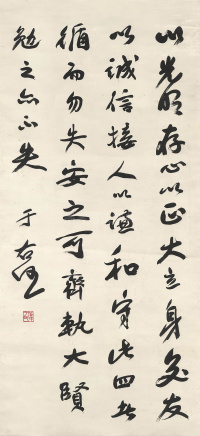 以光明存心以正大立身交友
以誠信接人以謙和守此四者
循而勿失安之可齊大賢
勉之亦不失
于右任